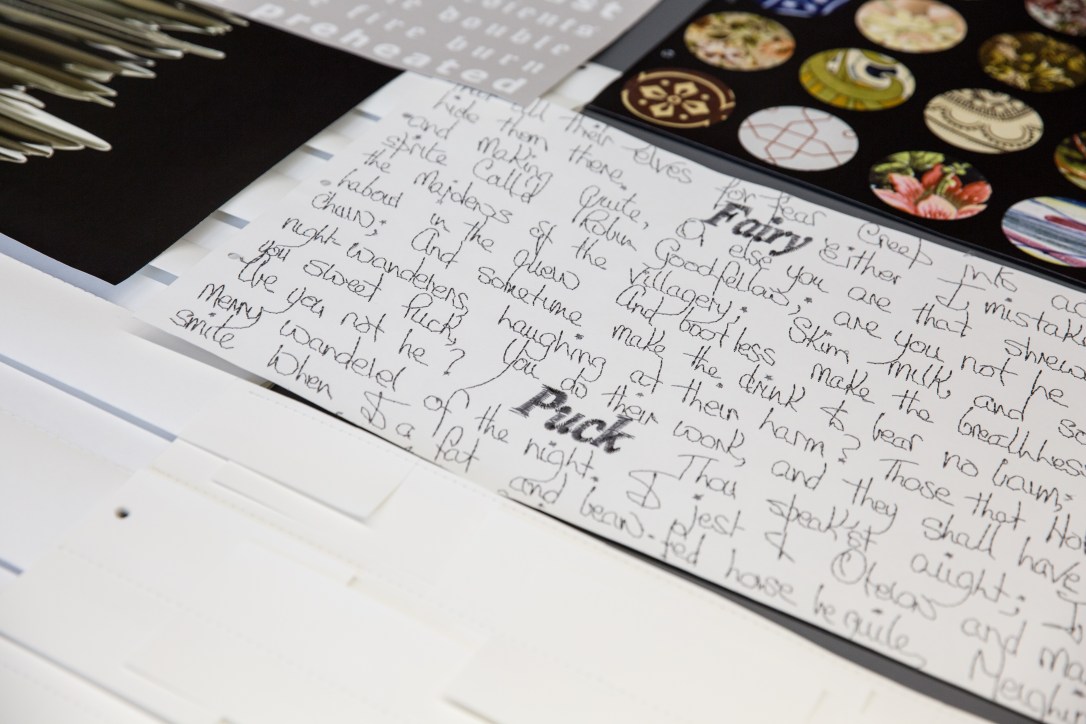 preheated
all their elves for fear Creep into ac
hide them there. Fairy Either I mistake
and making quite, Or else you are that shrew
sprite Call'd Robin Goodfellow; are you not he
the maidens of the villagery; Skim milk, and so
in the quern And bootless make the breathless
churn; And sometime make the drink to bear no
night-wanderers, laughing at their harm? Those that Ho
you sweet Puck, You do their work, and they shall have
Are you not he? Puck Thou speak'st aright; I
Merry wanderer of the night. I jest to Oberon and ma
smile When I a fat and bean-fed horse beguile, Neighin